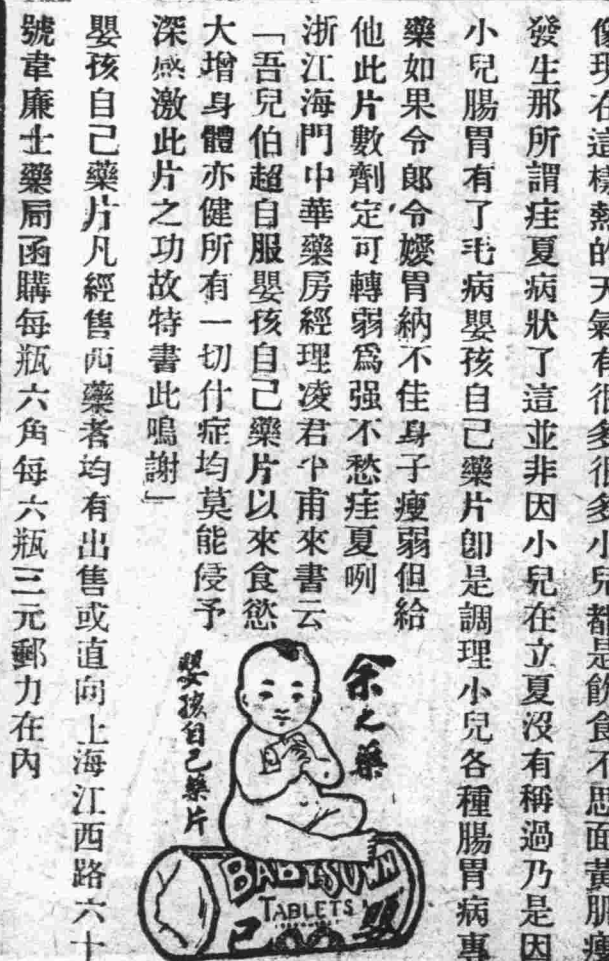 像現在這樣熱的天氣有很多很多小兒都是飲食不思面黃肌瘦
發生那所謂疰夏病狀了這並非因小兒在立夏沒有稱過乃是因
小兒腸胃有了毛病嬰孩自己藥片卽是調理小兒各種腸胃病專
藥如果令郎令嬡胃納不佳身子瘦弱但給
他此片數劑定可轉弱爲强不愁疰夏咧
浙江海門中華藥房經理凌君中甫來書云
「吾兒伯超自服嬰孩自己藥片以來食慾
大增身體亦健所有一切什症均莫能侵予
深感激此片之功故特書此鳴謝」
嬰孩自己藥片凡經售西藥者均有出售或直向上海江西路六十
號韋廉士藥局函購每瓶六角每六瓶三元郵力在內
余之藥
嬰孩自己藥片
BABY'S OWN
TABLETS
嬰
己